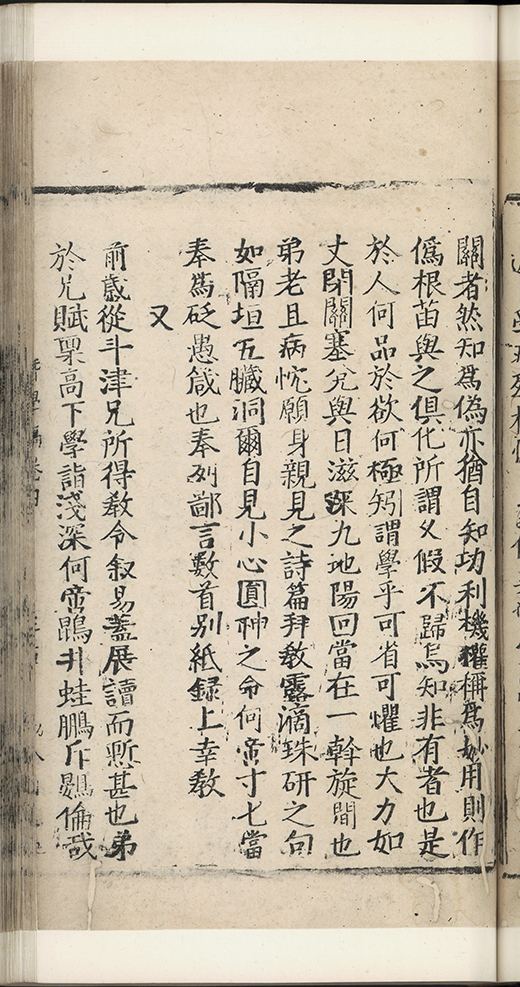 關者然知爲偽亦猶自知功利機權稱爲妙用則作
僞根苗與之俱化所謂乆假不歸烏知非有者也是
於人何品於欲何極矧謂學乎可省可懼也大力如
丈閉關塞兌與日滋深九地陽回當在一斡旋間也
弟老且病忱願身親見之詩篇拜教露滴珠研之句
如隔垣五臟洞爾自見小心圓神之命何啻寸七當
奉爲砭愚箴也奉列鄙言數首别紙録上幸教
又
前歲從斗津兄所得教令叙易蓋展讀而慙甚也弟
於兄賦稟高下學詣淺深何啻鵾井蛙鵬斥鷃倫哉